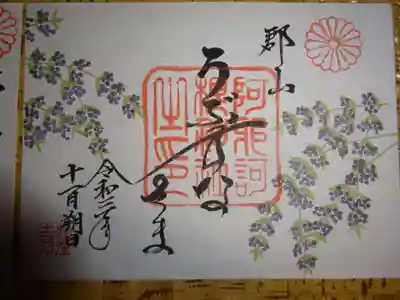 郡山
うぶすなさま
阿邪訶
根神社
之印
令和二年
十一月朔日